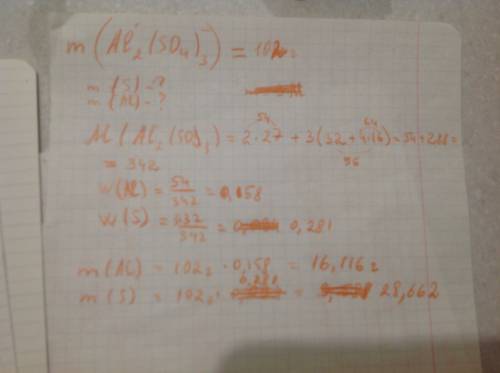 m (Al₂(SO₄)₃) = 102 г
m (S) - ?
m (Al) - ?
54 64
M (Al₂(SO₄)₃) = 2·27 + 3(32 + 4·16) = 54 + 288 =
96
= 342
w(Al) = 54/342 = 0,158
w(S) = 3·32/342 = 0,281
m(Al) = 102г · 0,158 = 16,116г
m(S) = 102г · 0,281 = 28,662